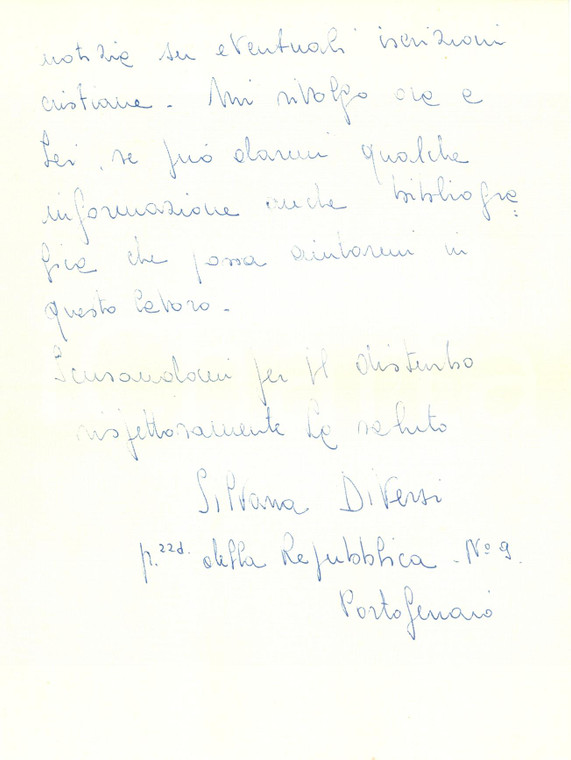 notizie su eventuali iscrizioni
cristiane. Mi rivolgo ora a
Lei, se può darmi qualche
informazione anche bibliogra=
fica che possa aiutarmi in
questo lavoro.
Scusandomi per il disturbo
rispettosamente La saluto
Silvana Diversi
p.zza. della Repubblica. N° 9.